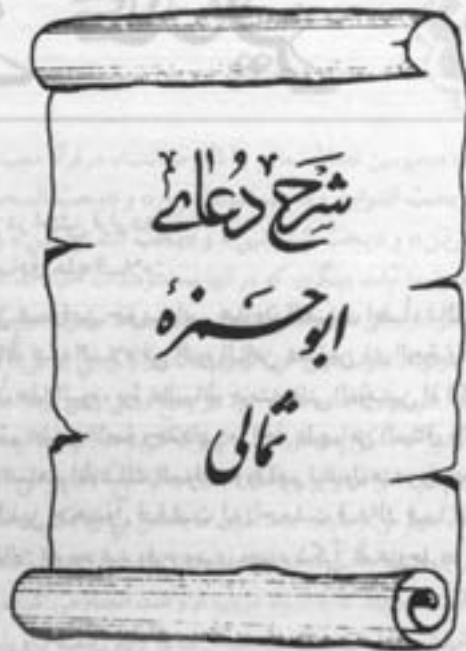 شرح دُعاے
ابوحمزهٔ
ثمالی